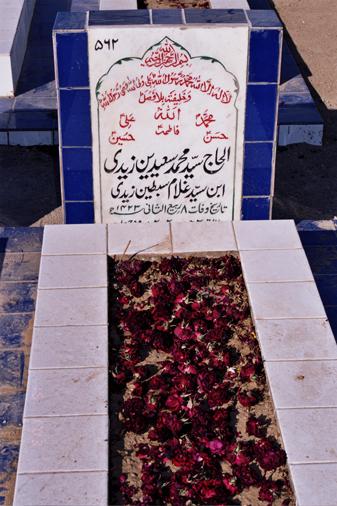 ۵۶۲
بسم الله الرحمن الرحيم
لا اله الا الله محمد رسول الله علی ولی الله وصی رسول الله
وخلیفته بلا فصل
الله
محمدؐ علیؑ
فاطمہؑ
حسنؑ حسینؑ
الحاج سید محمد سعیدین زیدی
ابن سید غلام سبطین زیدی
تاریخ وفات ۸ ربیع الثانی ۱۴۲۳ھ